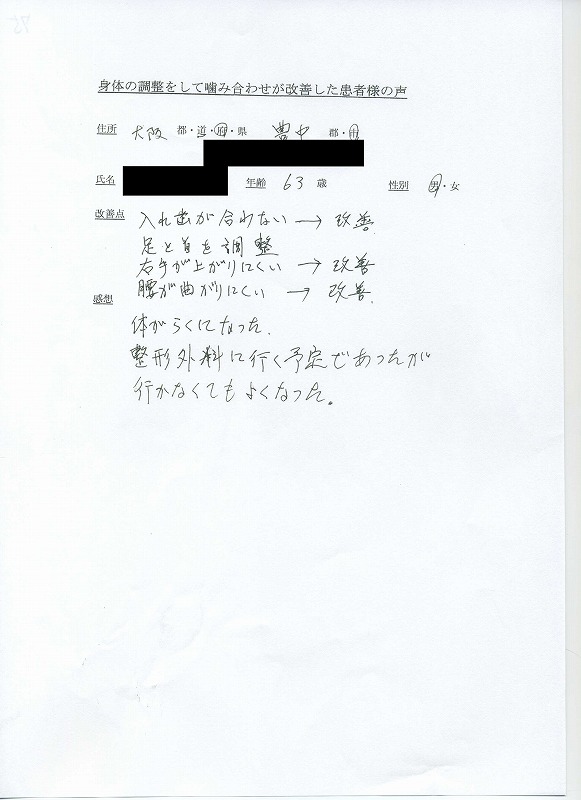 身体の調整をして噛み合わせが改善した患者様の声
住所 大阪 都・道・府・県 豊中 郡・市
氏名 年齢 63 歳 性別 男・女
改善点 入れ歯が合わない→改善
足と首を調整
右手が上がりにくい→改善
腰が曲がりにくい→改善
感想
体がらくになった.
整形外科に行く予定であったが
行かなくてもよくなった。